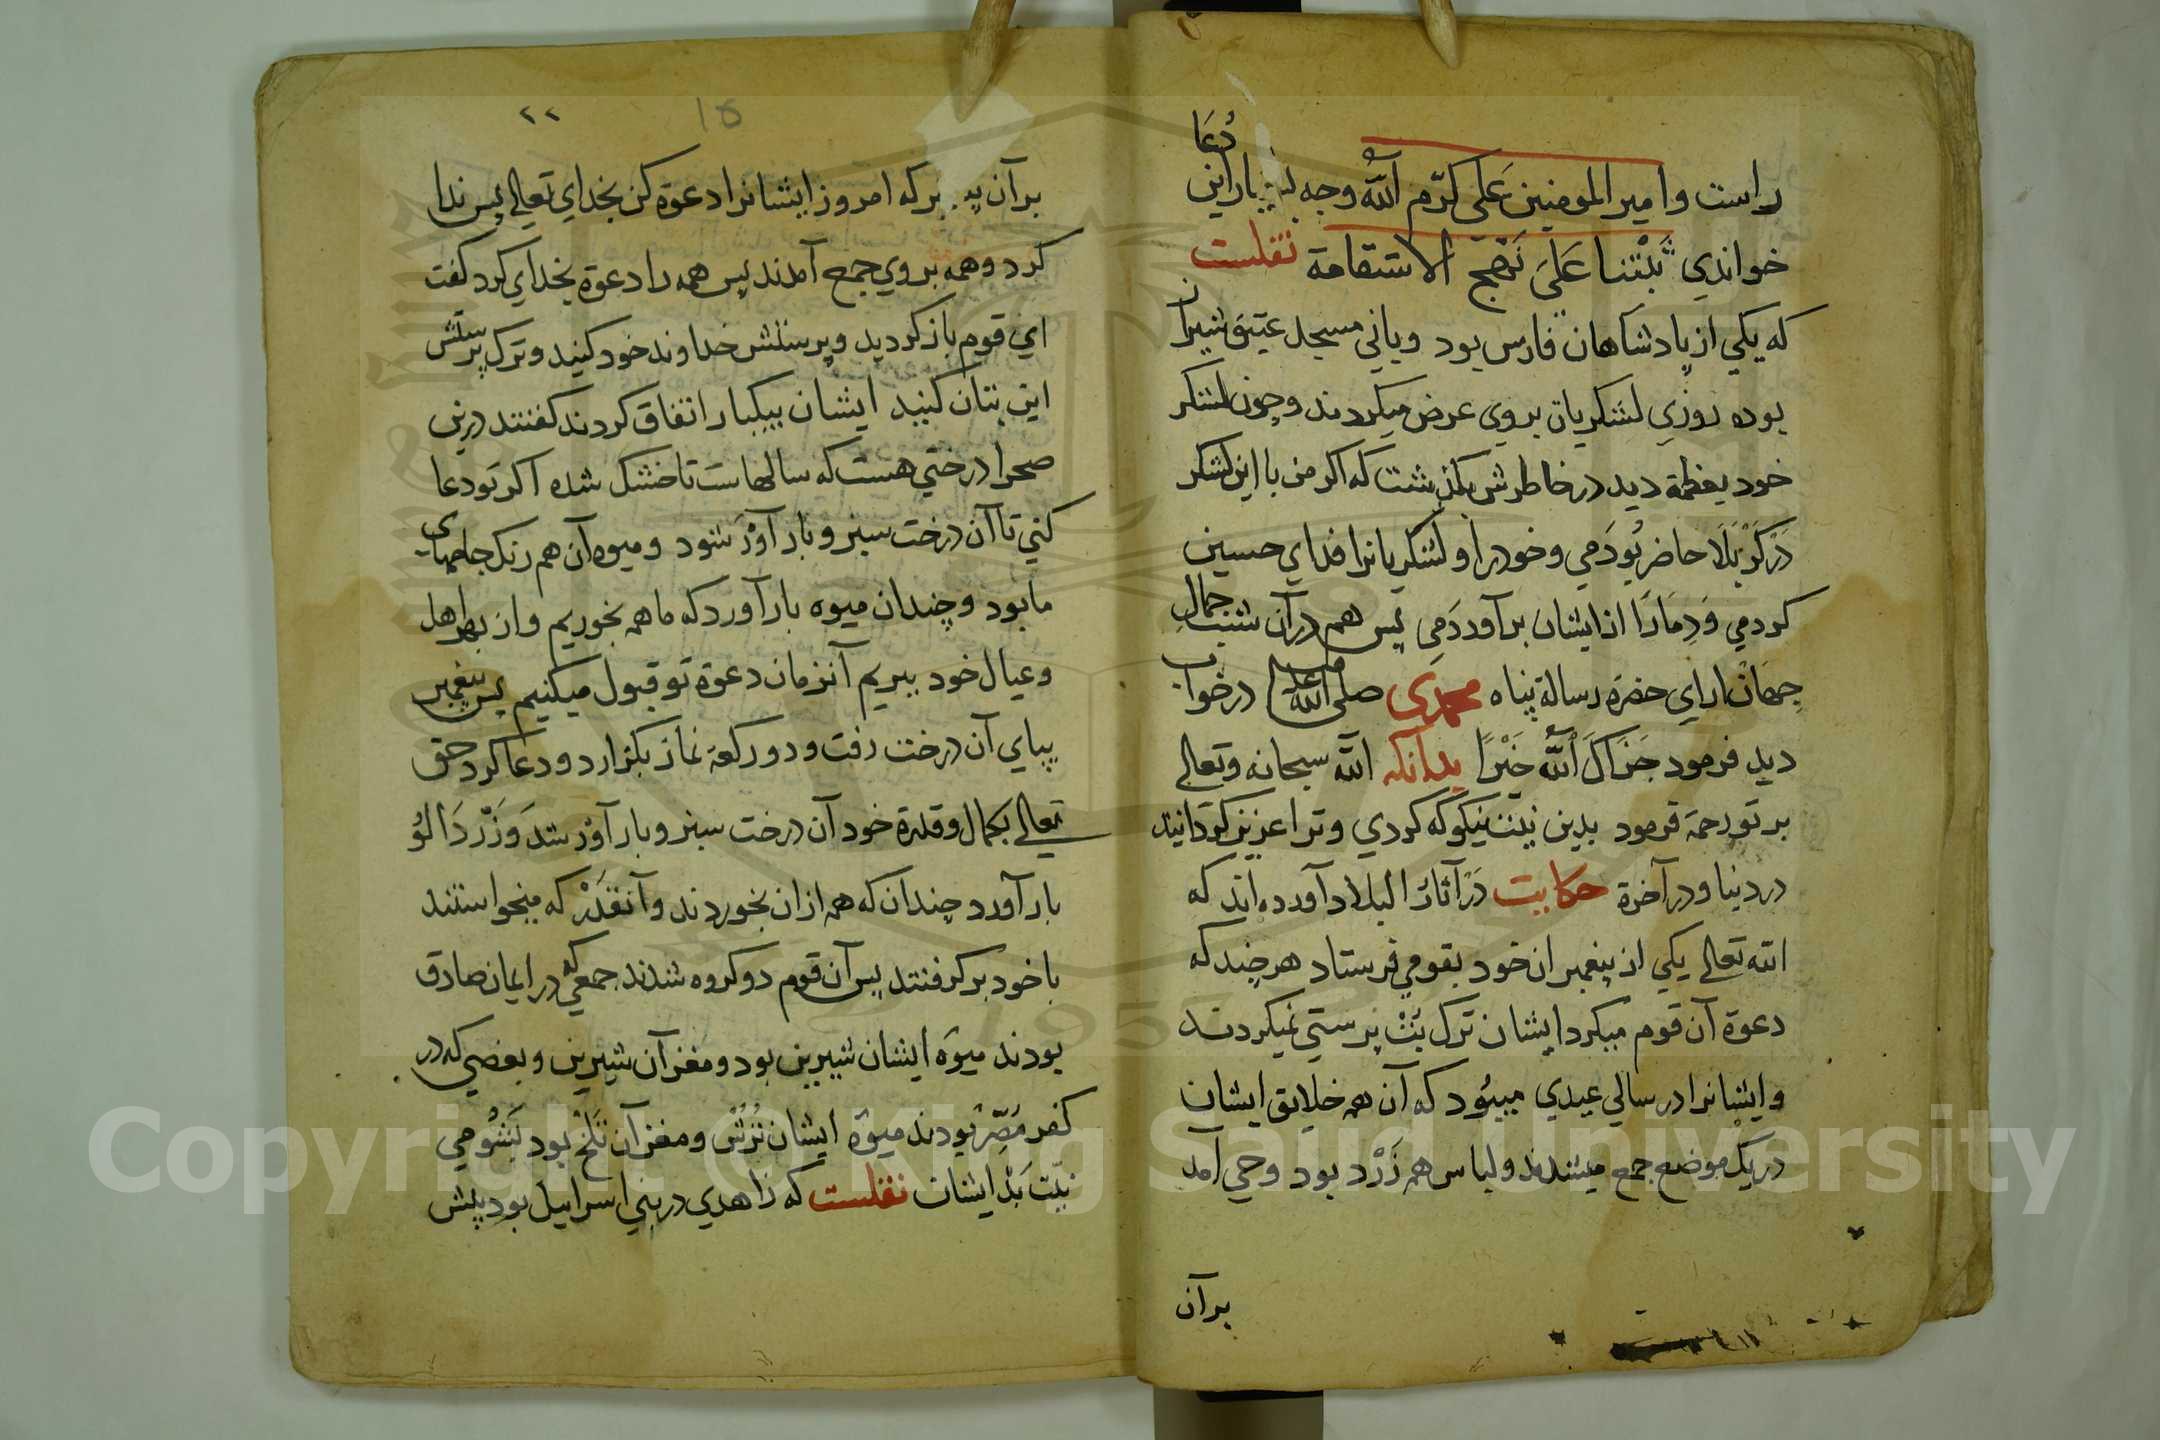 راست و امیر المومنین علی کرّم اللّٰه وجه بسیار این دُعَا
خواندي ثَبِّتْنا عَلَي نَهْجِ الاستقامة نقلست
که یکي از پادشاهان فارس بود و باني مسجد عتیق شیراز
بوده روزي لشکریان بروي عرض میکردند و چون لشکر
خود بعظمة دید در خاطرش بگذشت که اکر من با این لشکر
دَرْ کَرْبَلَا حاضر بُودَمي و خود را و لشکریانرا فداي حسین
کردمي وَ دِمَارْ از ایشان برآوردَمي پس هم در آن شب جمال
جِهَانْ اراي حضرة رسالة پناه محمدی صلی اللّٰه علیه در خواب
دید فرمود جَزَاکَ اللّٰهُ خَیْرًا بدانکه اللّٰه سبحانه و تعالي
بر تو رحمة فرمود بدین نیّت نیکو که کردي و ترا عزیز کردانید
در دنیا و در آخرة حکایت دَرْ آثارُ البلاد آورده اند که
اللّٰه تعالي یکي از پیغمبران خود بقومي فرستاد هر چند که
دعوة آن قوم میکرد ایشان ترک بُتْ پرستي نمیکردند
و ایشانرا در سالي عیدي میبُود که آن همه خلایق ایشان
در یک موضع جمع میشدند و لباس هم زَرْد بود وحي آمد
بر آن
١٥ ٢٢
بر آن پیغمبر که امروز ایشانرا دعوة کن بخداي تعالي پس ندا
کرد و همه بروي جمع آمدند پس همه را دعوة بخداي کرد کفت
اي قوم باز کردید و پرستش خداوند خود کنید و ترک پرستش
این بتان کنید ایشان بیکبار اتفاق کردند کفتند درین
صحرا درختي هست که سالهاست تا خشک شده اکر تو دعا
کني تا آن درخت سبز و بار آوَرْ شود و میوه آن هم رنک جامهاي
ما بود و چندان میوه بار آورد که ما همه بخوریم و از بهر اهل
و عیال خود ببریم آنزمان دعوة تو قبول میکنیم پس پیغمبر
بپاي آن درخت رفت و دو رکعة نماز بکزارد و دعا کرد حق
تعالي بکمال و قدرة خود آن درخت سبز و بار آوَرْ شد وَ زَرْدَ الُو
بار آورد چندان که همه از ان بخوردند و آنقَدَرْ که میخواستند
با خود بر کرفتند پس آن قوم دو کروه شدند جمعي که در ایمان صادق
بودند میوَه ایشان شیرین بود و مغز آن شیرین و بعضي که در
کفر مُصِرّ بودند میوَه ایشان تُرُش و مغز آن تَلْخ بود بَشُومي
نیّت بَدْ ایشان نقلست که زاهدي در بني اسراییل بود پیش